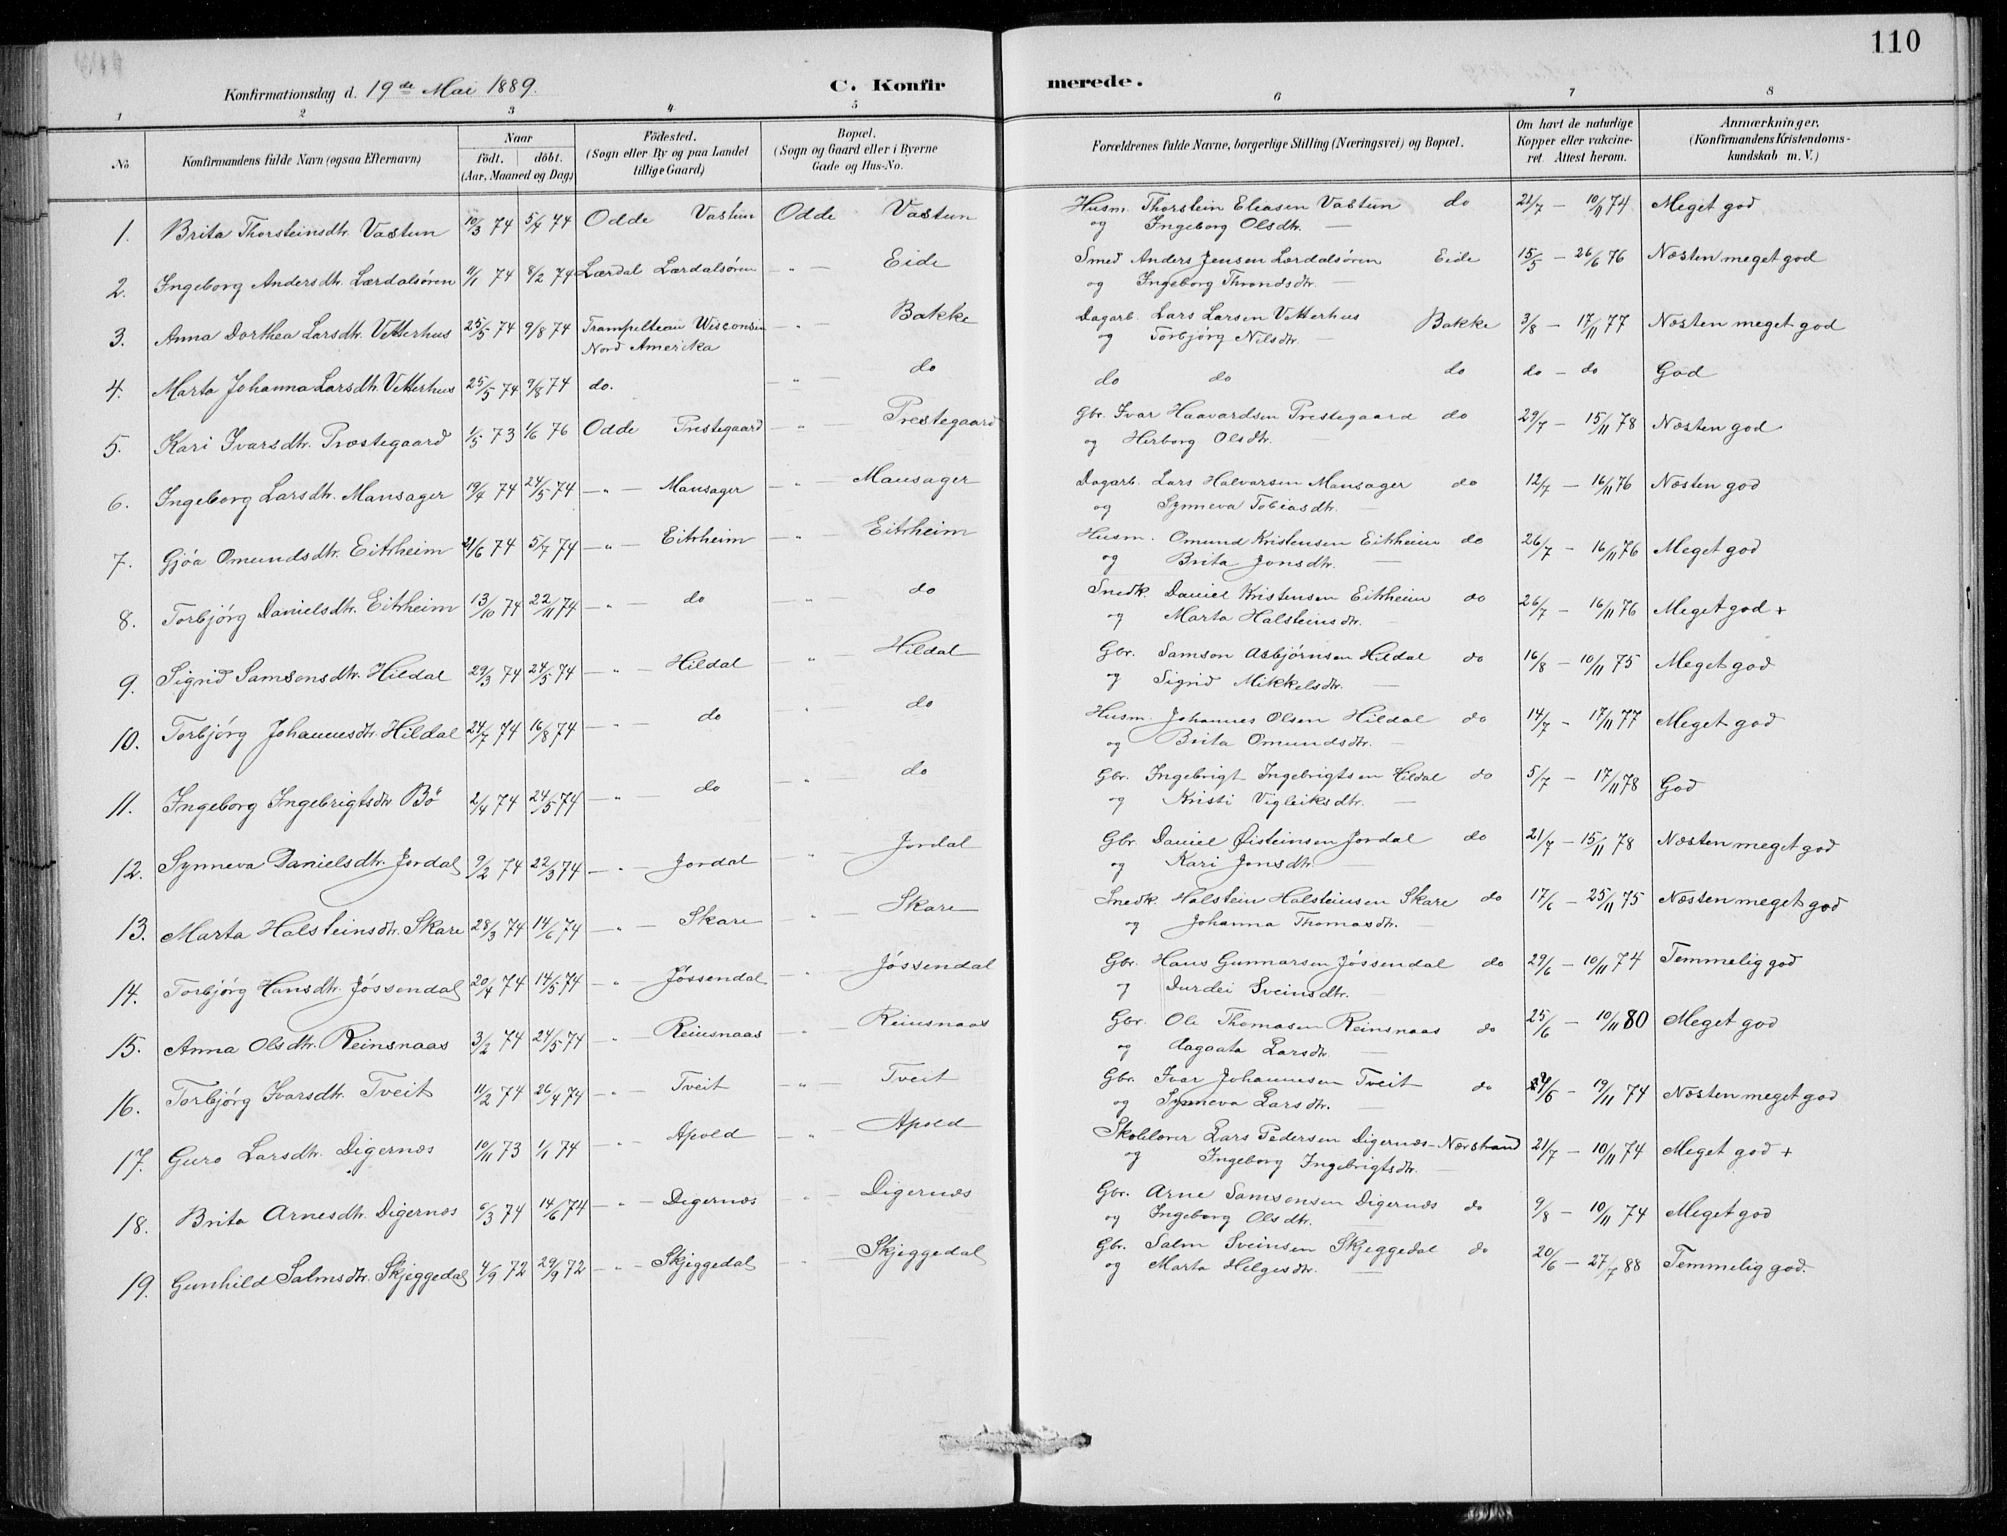 110
Konfirmationsdag d. 19de Mai 1889.
C. Konfirmerede.
1 2 3 4 5 6 7 8
No. | Konfirmandens fulde Navn (ogsaa Efternavn) | Naar födt. döbt. (Aar, Maaned og Dag) | Födested. (Sogn eller By og paa Landet tillige Gaard) | Bopæl. (Sogn og Gaard eller i Byerne Gade og Hus-No. | Forældrenes fulde Navne, borgerlige Stilling (Næringsvei) og Bopæl. | Om havt de naturlige Kopper eller vakcineret Attest herom. | Anmærkninger. (Konfirmandens Kristendomskundskab m. V.)
1. Brita Thorsteinsdtr. Vastun 10/3 74 5/4 74 Odde Vastun Odde Vastun Husm. Thorstein Eleasen Vastun do 21/7 — 10/11 74 Meget god
og Ingeborg Olsdtr. —
2. Ingeborg Andersdtr. Lærdalsören 11/1 74 8/2 74 Lærdal Lærdalsören — " — Eide Smed Anders Jensen Lærdalsören Eide 15/5 — 26/6 76 Næsten meget god
og Ingeborg Throndsdtr. —
3. Anna Dorthea Larsdtr. Vetterhus 25/5 74 9/8 74 Trampelteau Wisconsin — " — Bakke Dagarb. Lars Larsen Vetterhus Bakke 3/8 — 17/11 77 Næsten meget god
Nord Amerika og Torbjørg Nilsdtr. —
4. Marta Johanna Larsdtr. Vetterhus 25/5 74 9/8 74 do. — " — do do do do do — do God
5. Kari Ivarsdtr. Præstegaard 1/5 73 1/6 76 Odde Prestegaard — " — Prestegaard Gbr. Ivar Haavardsen Prestegaard do 29/7 — 15/11 78 Næsten god
og Herborg Olsdtr. —
6. Ingeborg Larsdtr. Mansager 19/4 74 24/5 74 — " — Mansager — " — Mansager Dagarb. Lars Halvorsen Mansager do 12/7 — 16/11 76 Næsten god
og Synneva Tobiasdtr. —
7. Gjøa Omundsdtr. Eitrheim 21/6 74 5/7 74 — " — Eitrheim — " — Eitrheim Husm. Omund Kristensen Eitrheim do 26/7 — 16/11 76 Meget god
og Brita Jonsdtr. —
8. Torbjörg Danielsdtr. Eitrheim 13/10 74 22/11 74 — " — do — " — do Snedk. Daniel Kristensen Eitrheim do 26/7 — 16/11 76 Meget god +
og Marta Halsteinsdtr. —
9. Sigrid Samsonsdtr. Hildal 29/3 74 24/5 74 — " — Hildal " — Hildal Gbr. Samson Asbjørnsen Hildal do 16/8 — 10/11 75 Meget god
og Sigrid Mikkelsdtr. —
10. Torbjörg Johannesdtr. Hildal 24/7 74 16/8 74 — " — do " do Husm. Johannes Olsen Hildal do 14/7 — 17/11 77 Meget god
og Brita Omundsdtr. —
11. Ingeborg Ingebrigtsdtr Bö 2/4 74 24/5 74 — " — do — " — do Gbr. Ingebrigt Ingebrigtsen Hildal do 5/7 — 17/11 78 God
og Kristi Vigleiksdtr. —
12. Synneva Danielsdtr. Jordal 9/2 74 22/3 74 — " — Jordal — " — Jordal Gbr. Daniel Øisteinsen Jordal do 21/7 — 15/11 78 Næsten meget god
og Kari Jonsdtr. —
13. Marta Halsteinsdtr. Skare 28/3 74 14/6 74 — " — Skare " — Skare Snedk. Halstein Halsteinsen Skare do 17/6 — 25/11 75 Næsten meget god
og Johanna Thomasdtr. —
14. Torbjörg Hansdtr. Jössendal 20/4 74 14/5 74 — " — Jössendal — " — Jössendal Gbr. Hans Gunnarsen Jössendal do 29/6 — 10/11 74 Temmelig god
og Durdei Sveinsdtr. —
15. Anna Olsdtr. Reinsnaas 3/2 74 24/5 74 — " — Reinsnaas — " — Reinsnaas Gbr. Ole Thomasen Reinsnaas do 25/6 — 10/11 80 Meget god
og Aagaata Larsdtr. —
16. Torbjörg Ivarsdtr. Tveit 11/2 74 26/4 74 — " — Tveit — " — Tveit Gbr. Ivar Johannesen Tveit do /6 — 19/11 74 Næsten meget god
og Synneva Larsdtr. —
17. Guro Larsdtr. Digernæs 10/11 73 1/1 74 — " — Apold — " — Apold Skolelærer Lars Pedersen Digernæs — Nærstrand 21/7 — 10/11 74 Meget god +
og Ingeborg Ingebrigtsdtr. —
18. Brita Arnesdtr. Digernæs 6/3 74 14/6 74 — " — Digernæs — " — Digernæs Gbr. Arne Samsonsen Digernæs do 9/8 — 10/11 74 Meget god
og Ingeborg Olsdtr. —
19. Gunhild Salmsdtr. Skjeggedal 4/9 72 29/9 72 — " — Skjeggedal — " — Skjeggedal Gbr. Salm Sveinsen Skjeggedal do 20/6 — 27/7 88 Temmelig god.
og Marta Helgesdtr. —